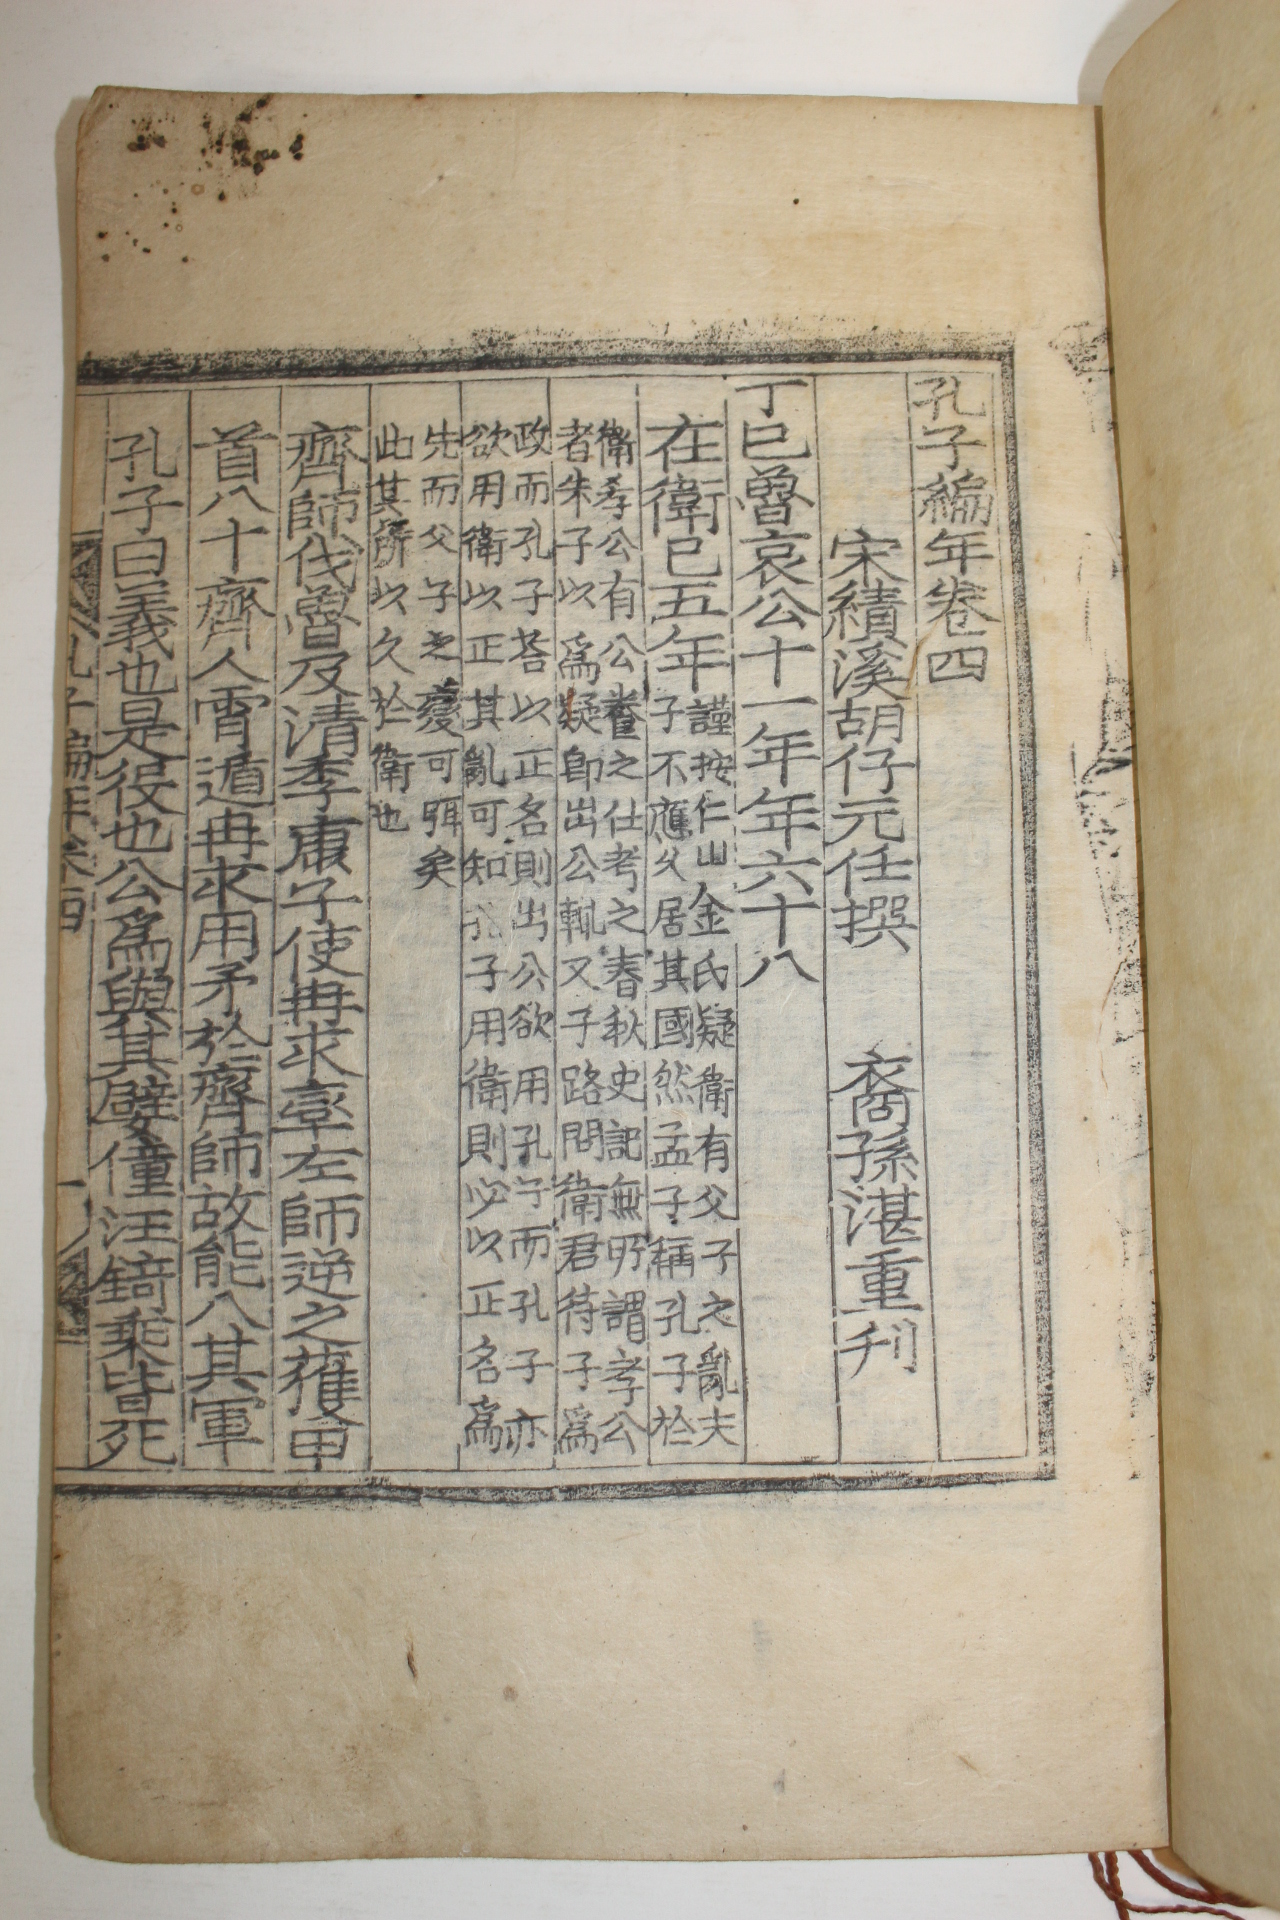 孔子編年卷四
宋績溪胡仔元任撰 裔孫湛重刋
丁巳魯哀公十一年年六十八
在衛已五年
謹按仁山金氏疑衛有父子之亂夫
子不應久居其國然孟子稱孔子於
衛孝公有公養之仕考之春秋史記無所謂孝公
者朱子以爲疑卽出公輒又子路問衛君待子爲
政而孔子荅以正名則出公欲用孔子而孔子亦
欲用衛以正其亂可知孔子用衛則必以正名爲
先而父子之變可弭矣
此其所以久於衛也
齊師伐魯及清季康子使冉求率左師逆之獲甲
首八十齊人宵遁冉求用矛於齊師故能入其軍
孔子曰義也是役也公爲與其嬖僮汪錡乘皆死
孔子編年卷四
一